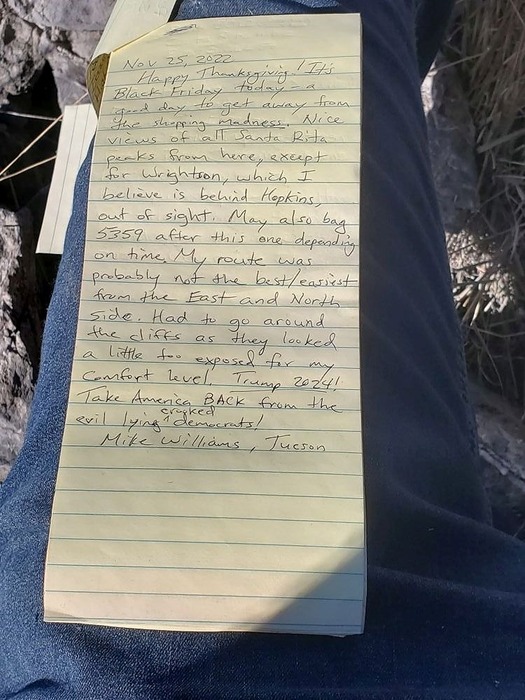 Nov 25, 2022
Happy Thanksgiving! It's
Black Friday today - a
good day to get away from
the shopping madness. Nice
views of all Santa Rita
peaks from here, except
for Wrightson, which I
believe is behind Hopkins,
out of sight. May also bag
5359 after this one depending
on time. My route was
probably not the best/easiest
from the East and North
side. Had to go around
the cliffs as they looked
a little too exposed for my
comfort level. Trump 2024!
Take America BACK from the
evil lying ^crooked democrats!
Mike Williams, Tucson